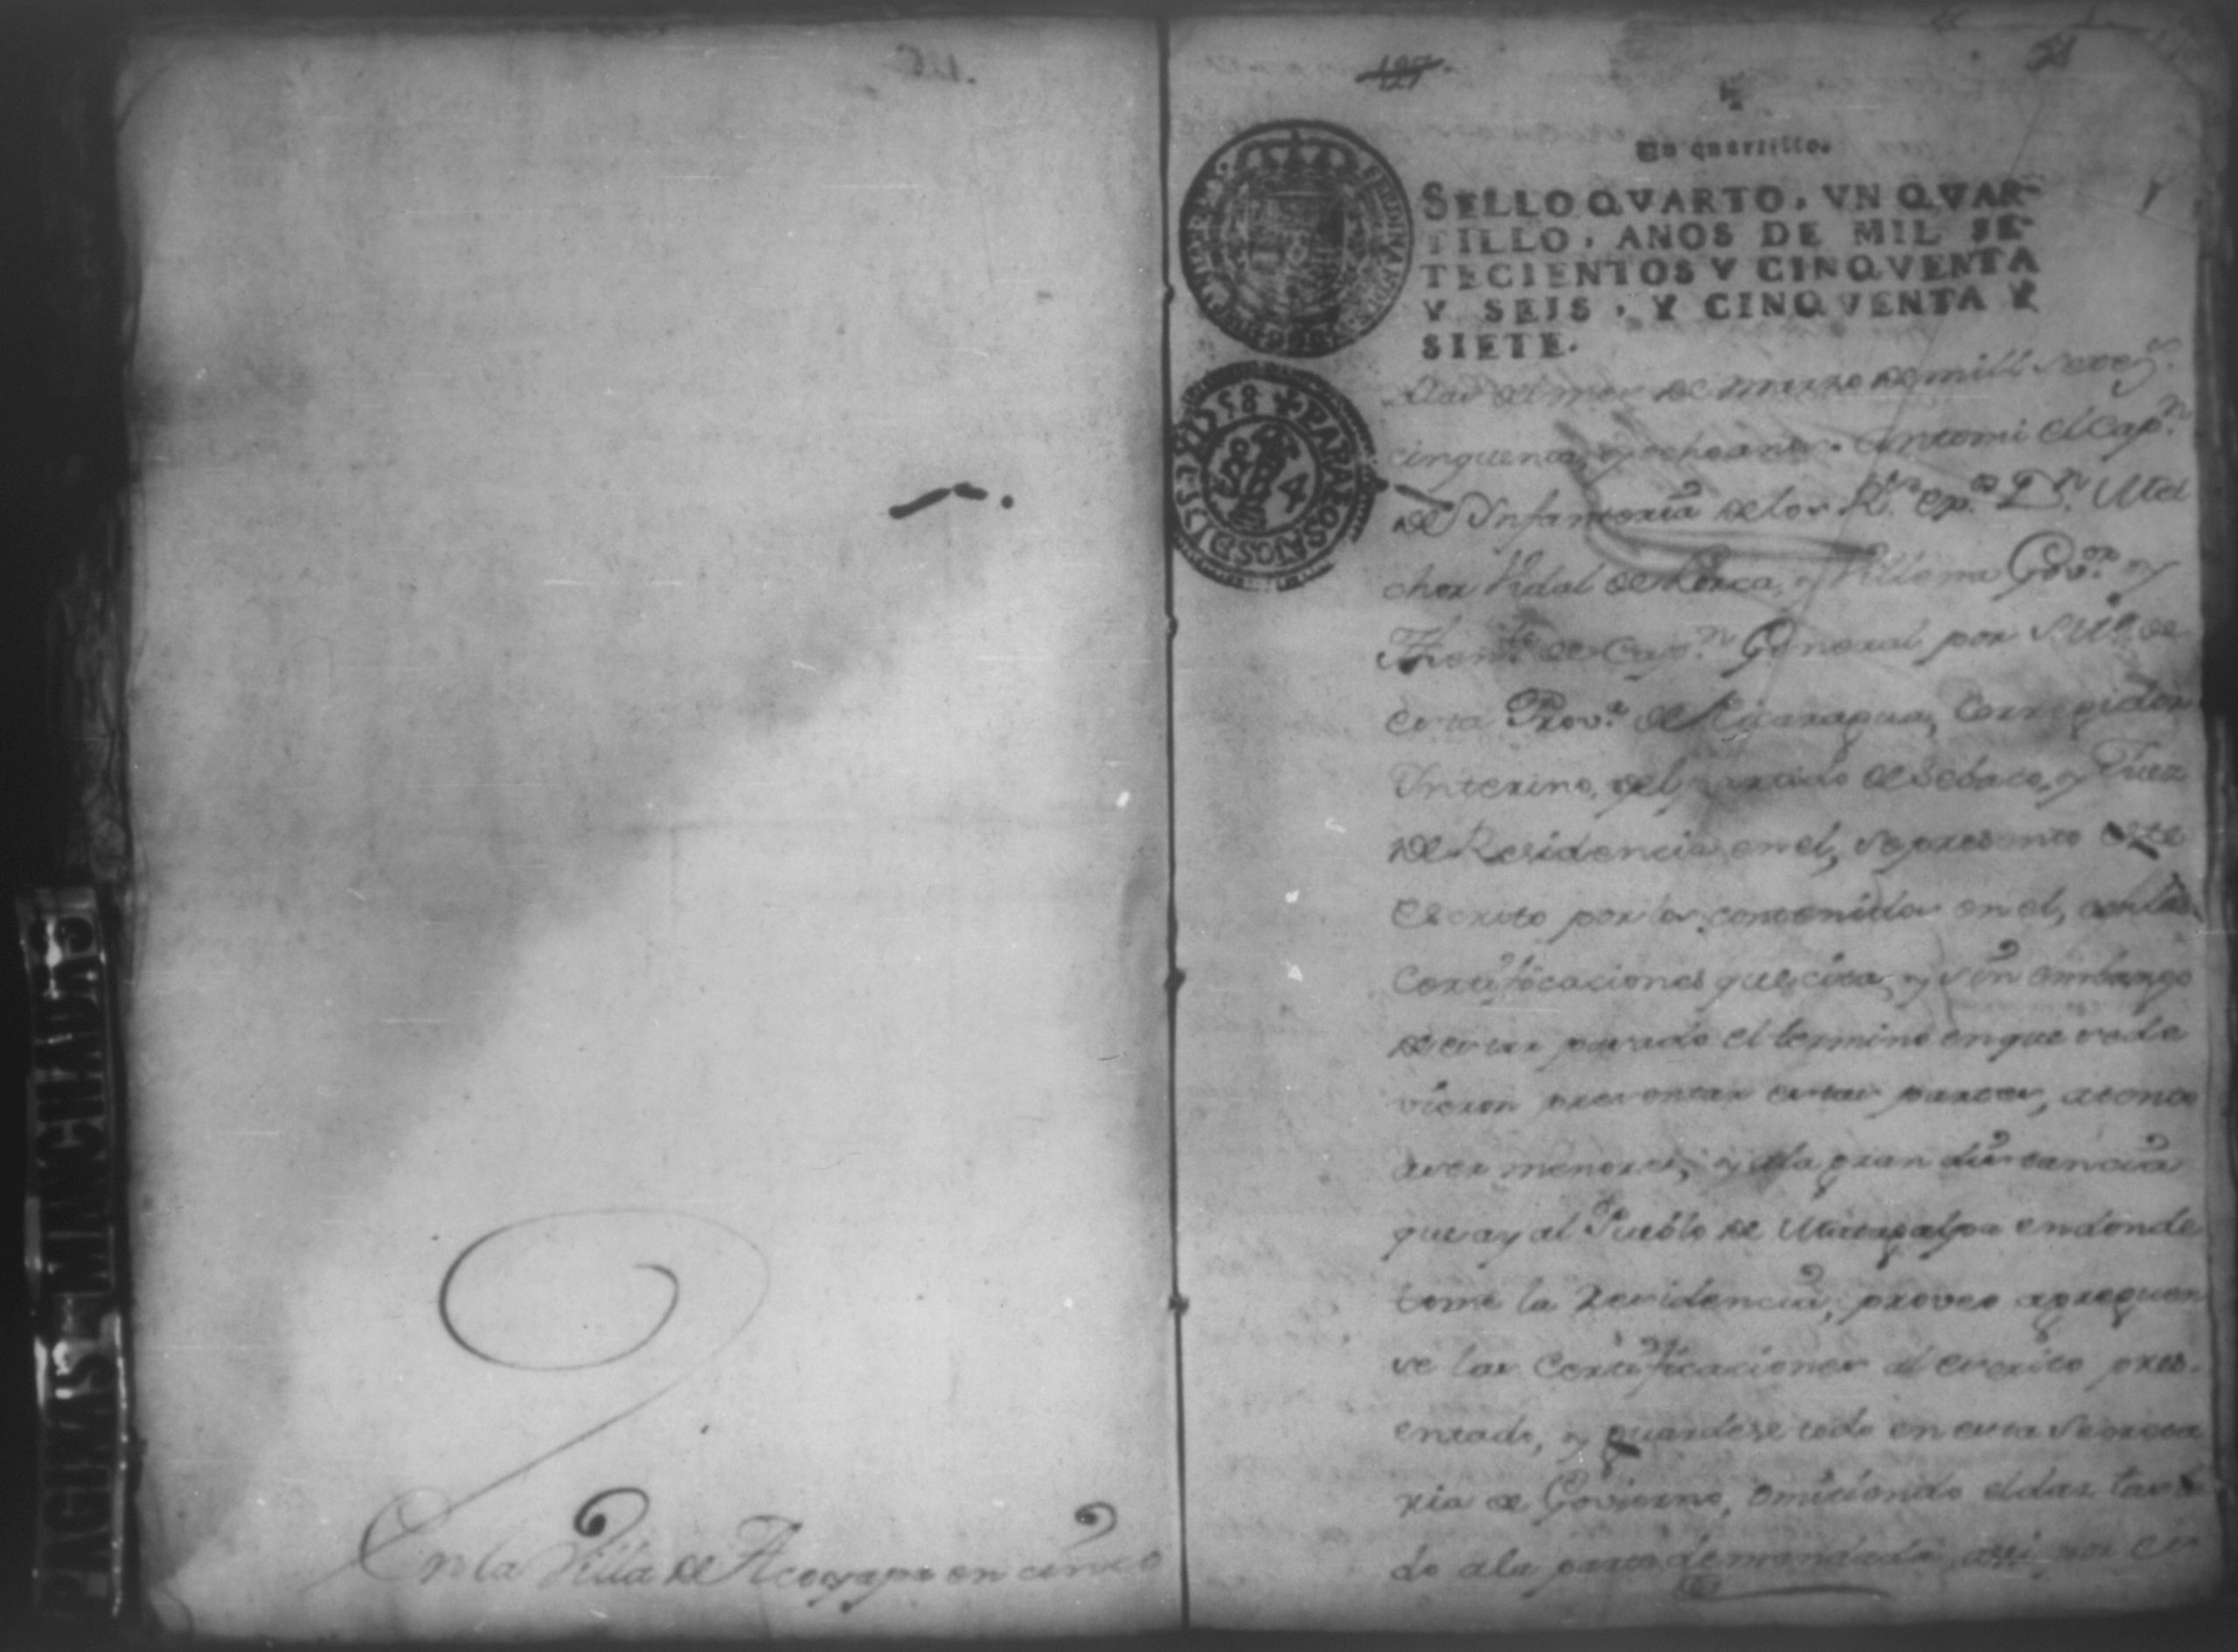 En la Villa de Acoyapa en cinco
127.
Un quartillo.
SELLO QVARTO, VN QVAR-
TILLO, AÑOS DE MIL SE-
TECIENTOS Y CINQVENTA
Y SEIS, Y CINQVENTA Y
SIETE.
dias del mes de marzo de mill setez.s
cinquenta, y ocho años. Antemi el Cap.n
de Ynfanteria delos R.s ex.tos D.n Mel
chor Vidal de Lorca, y Villena Gov.or y
Then.te de Cap.n General por S. M. de
esta Prov.a de Nicaragua, Corregidor
Ynterino, del partido de Sebaco, y Juez
de Residencia en el, se presento este
escrito por los contenidos en el, con las
Certificaciones que cita, y sin embargo
de estar pasado el termino en que se de
vieron presentar estas partes, atento
aver menores, y a la gran distancia
que ay al Pueblo de Matagalpa en donde
tome la Residencia, proveo agreguen
se las Certificaciones al escrito pres-
entado, y guardese todo en esta Secreta
ria de Govierno, omitiendo el dar tras
do ala parte demandada, assi por es
PARA LOS AÑOS D 1757 Y EL DE 1758
PAGINAS MANCHADAS